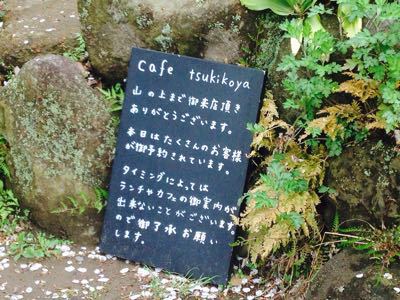 cafe tsukikoya
山の上まで御来店頂き
ありがとうございます。
本日はたくさんのお客様
が御予約されています。
タイミングによっては
ランチやカフェの御案内が
出来ないことがございます。
ので御了承お願い
します。